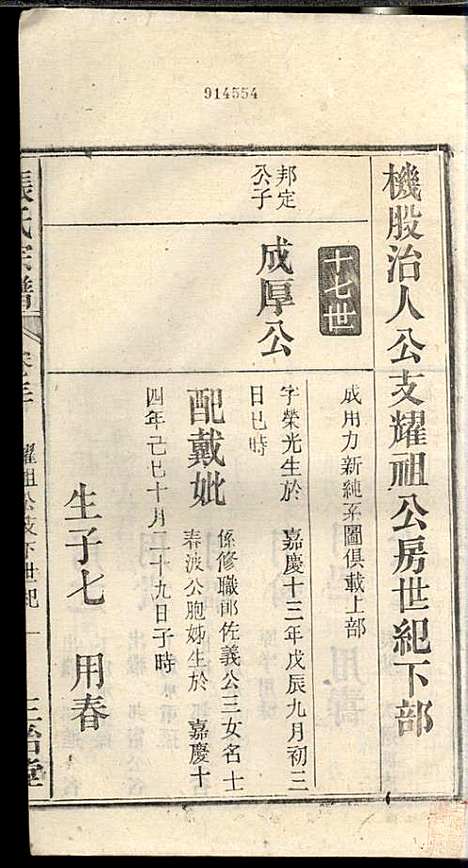 914554
機股治人公支耀祖公房世紀下部
十七世
成用力新純系圖俱載上部
邦定
公子
成厚公
字榮光生於 嘉慶十三年戊辰九月初三
日巳時
配戴妣
係修職郎佐義公三女名士
春波公胞姊生於 嘉慶十
四年己巳十月二十九日子時
生子七 用春
張氏宗譜
耀祖公支下世紀 一
三治堂